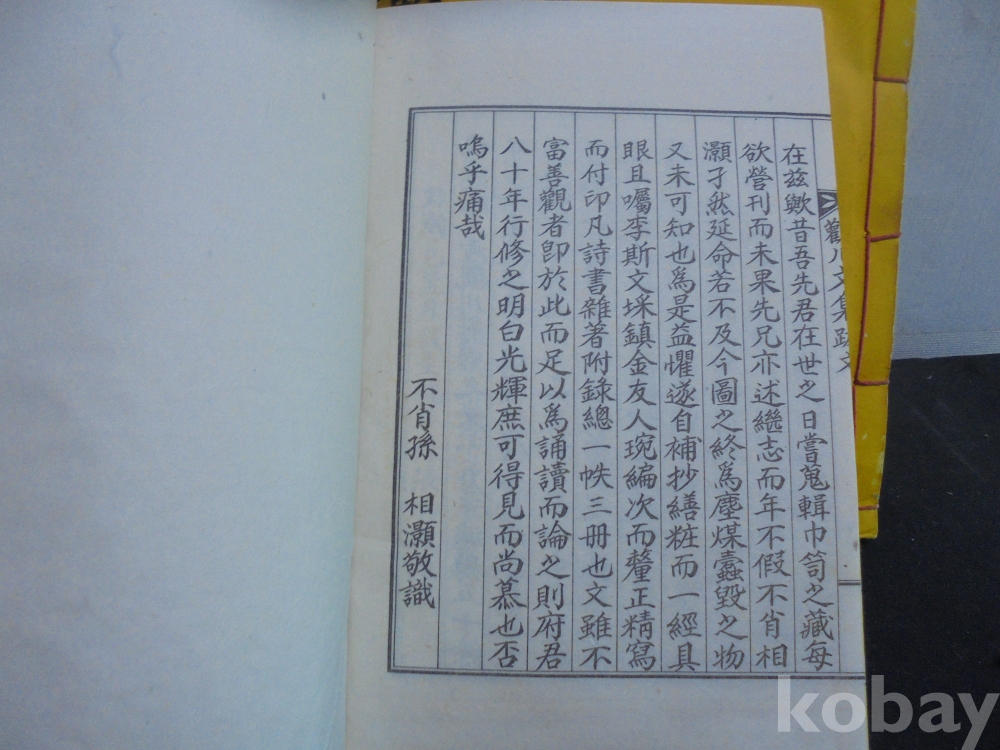 觀川文集跋文
在茲歟昔吾先君在世之日嘗蒐輯巾笥之藏每
欲營刊而未果先兄亦述繼志而年不假不肖相
灝孑然延命若不及今圖之終爲塵煤蠹毀之物
又未可知也爲是益懼遂自補抄繕粧而一經具
眼且囑李斯文埰鎮金友人琬編次而釐正精寫
而付印凡詩書雜著附錄總一帙三冊也文雖不
富善觀者卽於此而足以爲誦讀而論之則府君
八十年行修之明白光輝庶可得見而尚慕也否
嗚乎痛哉
不肖孫 相灝敬識
kobay